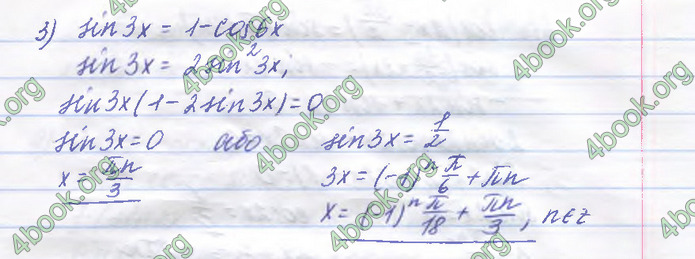 3) sin3x = 1-cos6x
sin3x = 2sin²3x;
sin3x(1-2sin3x)=0
sin3x=0 або sin3x = 1/2
x = πn/3 3x = (-1)ⁿ π/6 + πn
x = (-1)ⁿ π/18 + πn/3, n∈z
4book.org